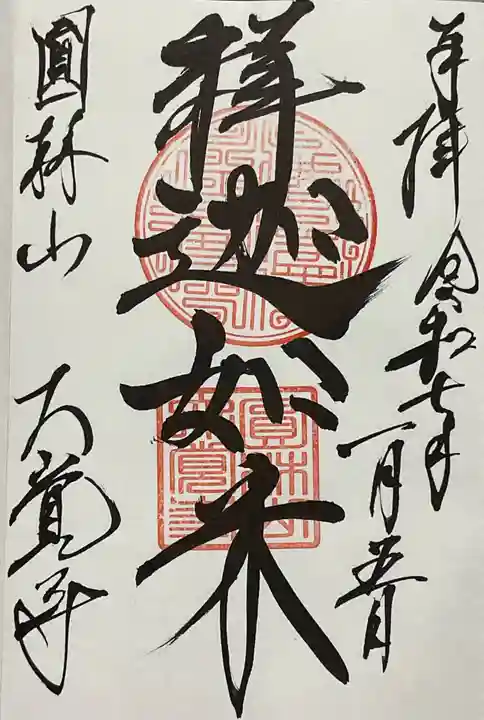 奉拝 令和七年
一月五日
釋迦如来
圓林山 大覚寺